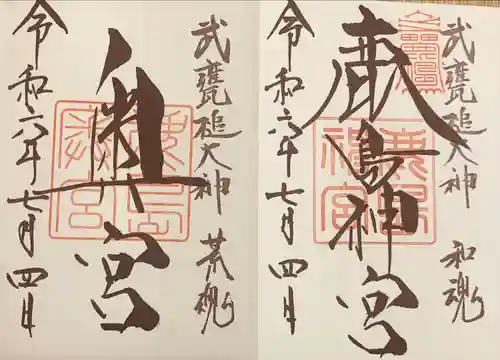 武甕槌大神 和魂
鹿島神宮
令和六年七月四日
武甕槌大神 荒魂
奥宮
令和六年七月四日